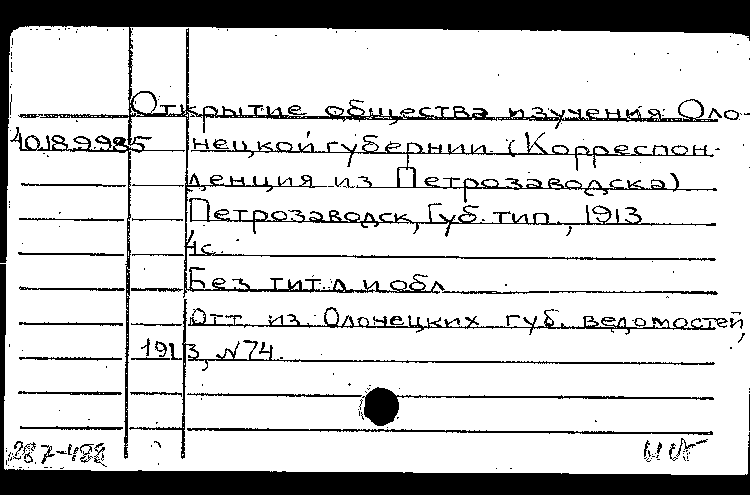 Открытие общества изучения Оло-
40189985 нецкой губернии (Корреспон-
денция из Петрозаводска)
Петрозаводск, Губ. тип., 1913
4с.
Без тит. л и обл
Отт. из Олонецких губ. ведомостей,
1913, N74.
287-488